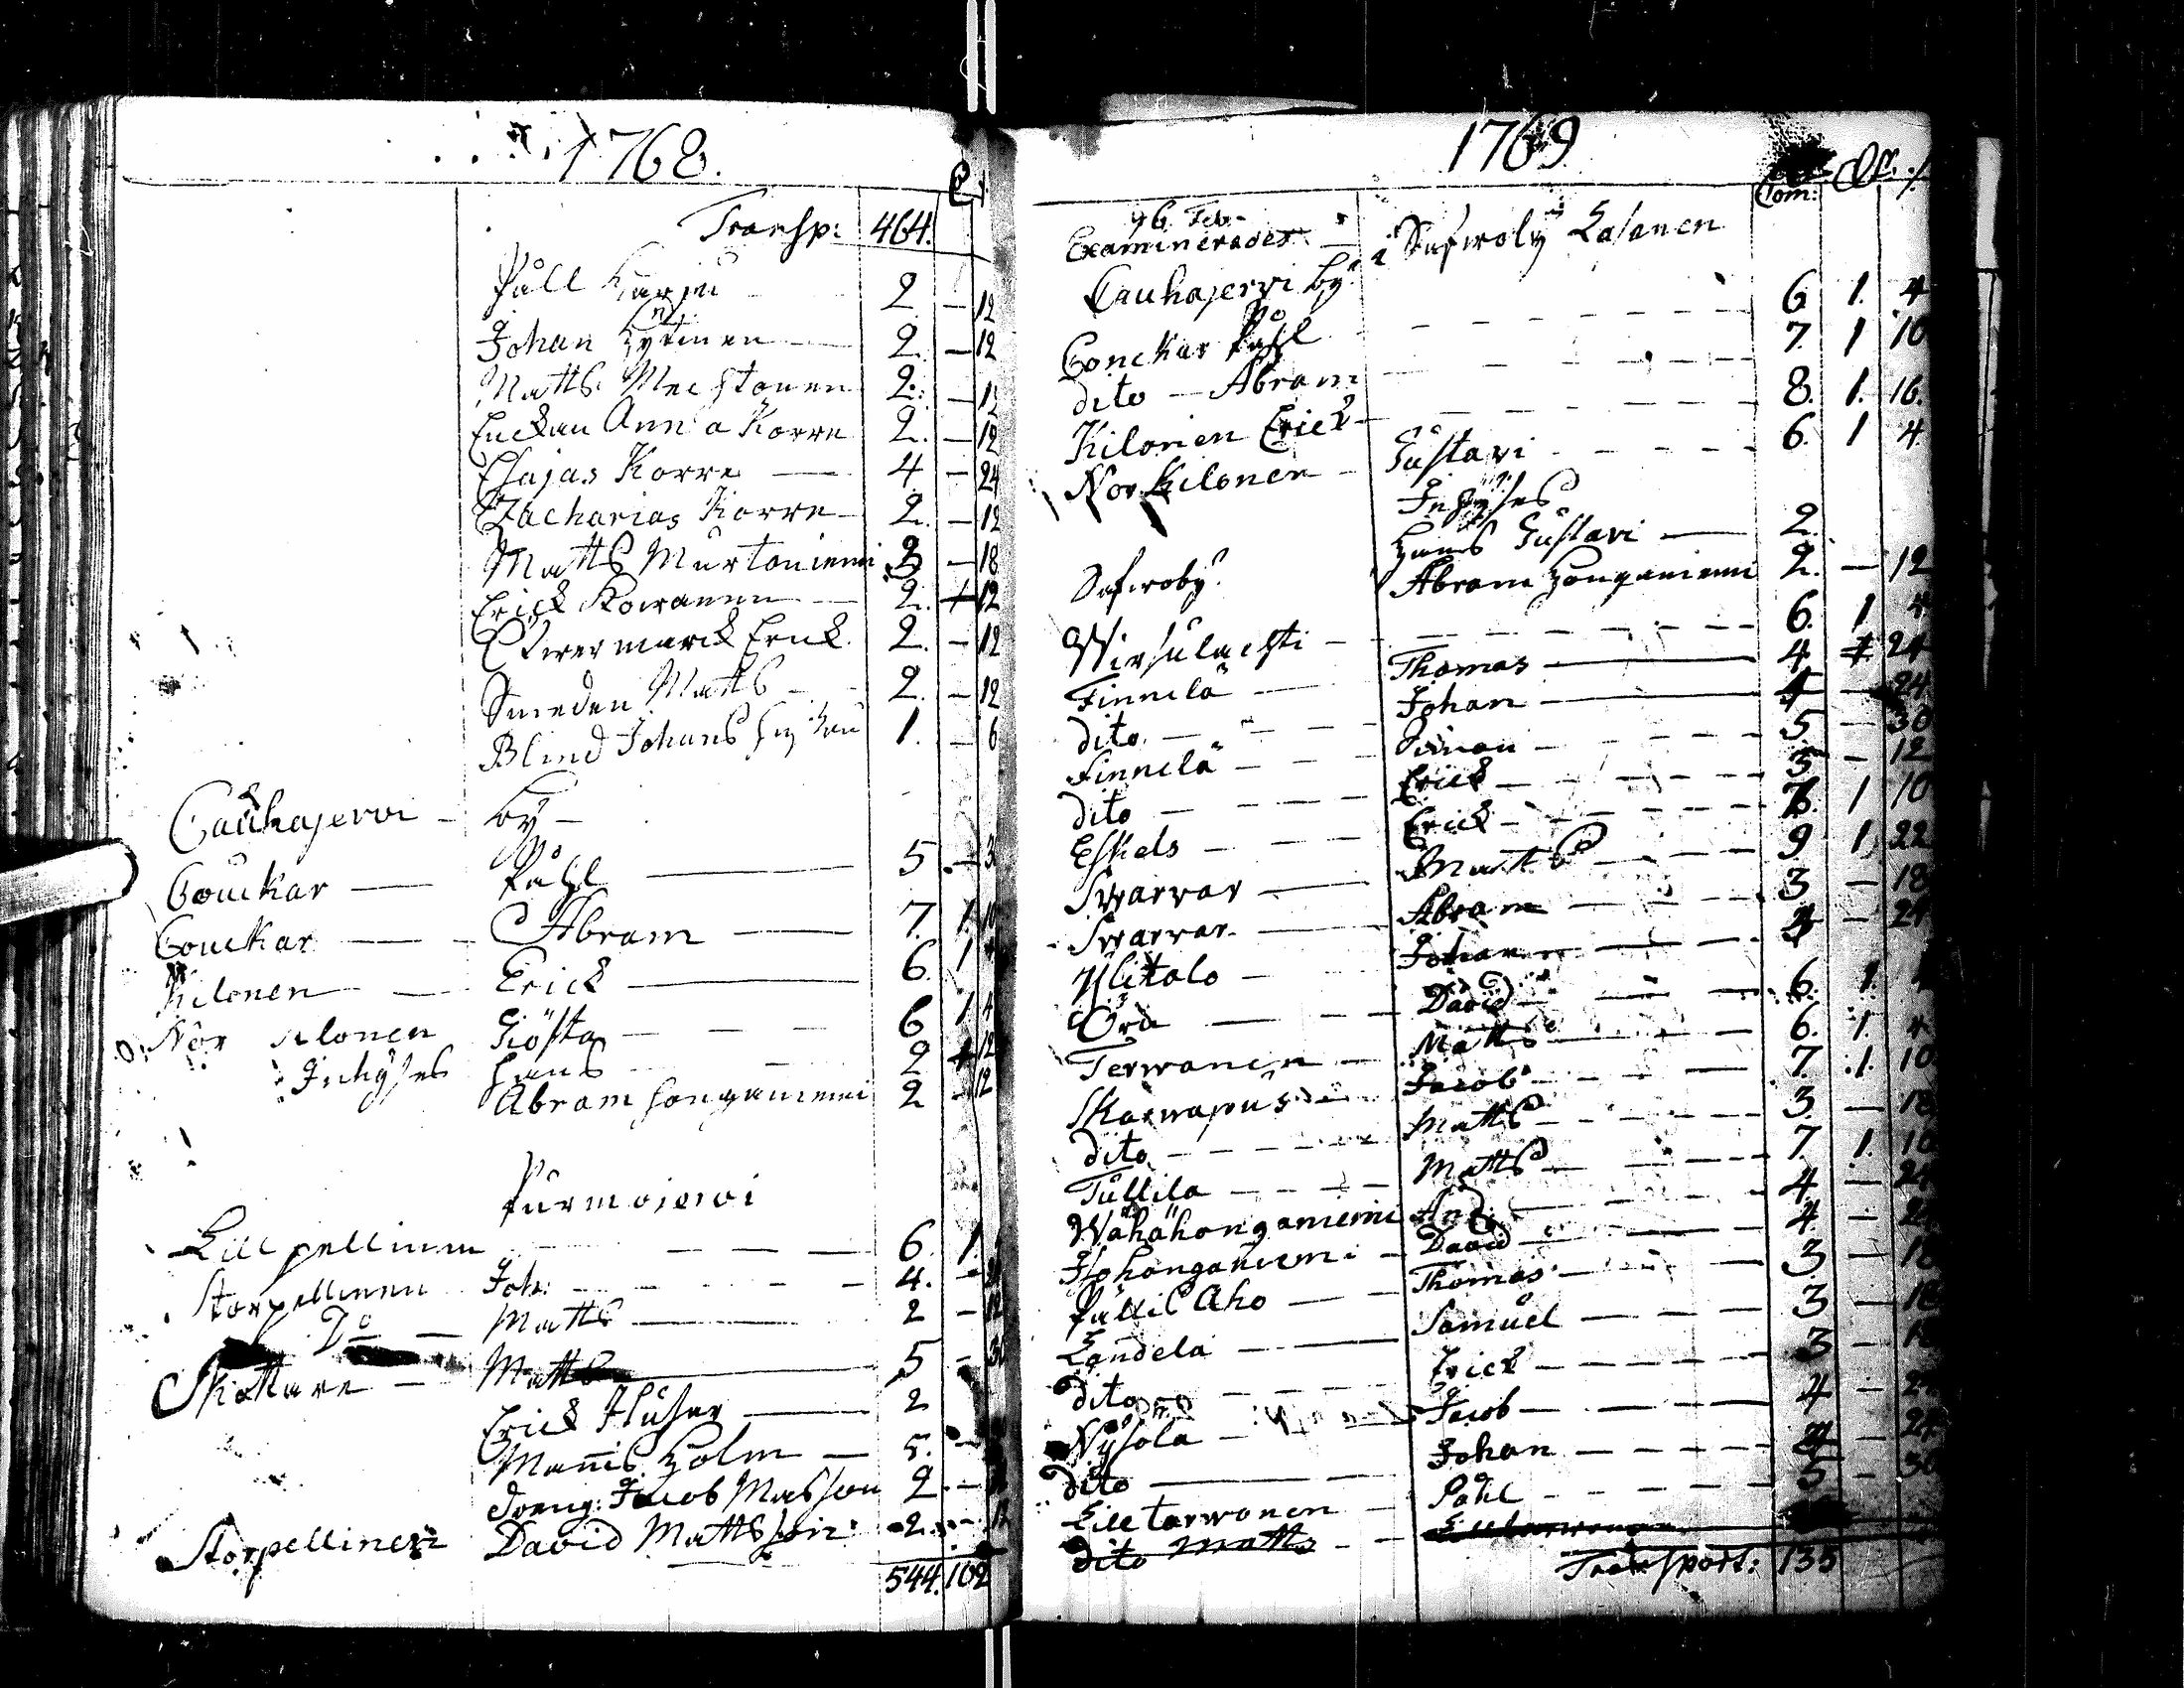 1768.
Transp: 464.
Påll Harju 2 — 12
Johan Hytinen — 2. — 12
Matts Mechtonen 2. — 12
Enckan Anna Korre 2. — 12
Esajas Korre — 4 — 24
Zacharias Korre — 2. — 12
Matts Murtoniemi 3 — 18
Erick Kowanen — 2. — 12
Erick. 2. — 12
Smeden Matts — 2. — 12
Blind Johans 1. — 6
Cauhajervi — by —
Couckar — Påhl — 5. — 30
Couckar — Abram — 7. 1. 10
Kilonen — Erick — 6. 1 4
Nor Kilonen Giösta — 6 1 4
Inhyses Hans — 2 — 12
Abram Honganiemi 2 — 12
Purmojervi
Lill pellinen — 6. 1.
Storpellinen Joh: — 4. — 24
Do — Matts — 2 — 12
Skattare — Matts — 5 — 30
Erick — 2
Manis Holm — 5. —
Dreng: Jacob Matsson 2. —
Storpellinen David Mattsson 2. — 12
544. 102
1769
Com:
Feb.
Examinerades — i Safwoby
Cauhajervi by 6 1. 4
Couckar Påhl — 7. 1 10
dito — Abram — 8. 1. 16.
Kilonen Erick — 6. 1 4
Nor Kilonen — Gustavi
Inhyses
Hans Gustavi — 2.
Safwoby. Abram Honganiemi 2. — 12
Wirsulachti — 6. 1 4
Finnilä — Thomas — 4 24
dito — Johan — 4 — 24
Finnilä — Simon — 5 — 30
dito — Erick — 3 — 12
Eskels — Erick — 7. 1 10
Swarvar — Matts — 9. 1. 22
Swarvar — Abram — 3 — 18
Ylitalo — Johan — 4 — 24
Ora — David — 6. 1. 4
Terwanen — Matts — 6. 1. 4
Skarwapus — Jacob — 7. 1. 10
dito — Matts — 3. — 18
Tullila — Matts — 7 1. 10
Wähähonganiemi And — 4 — 24
Isohonganiemi — David — 4. — 24
Pällis Aho — Thomas — 3 — 18
Landela — Samuel — 3 — 18
dito — Erick — 3 — 18
Nysola — Jacob — 4 — 24
dito — Johan — 4 — 24
Lill tarwonen — Påhl — 5 — 30
dito Matts —
Transport: 135